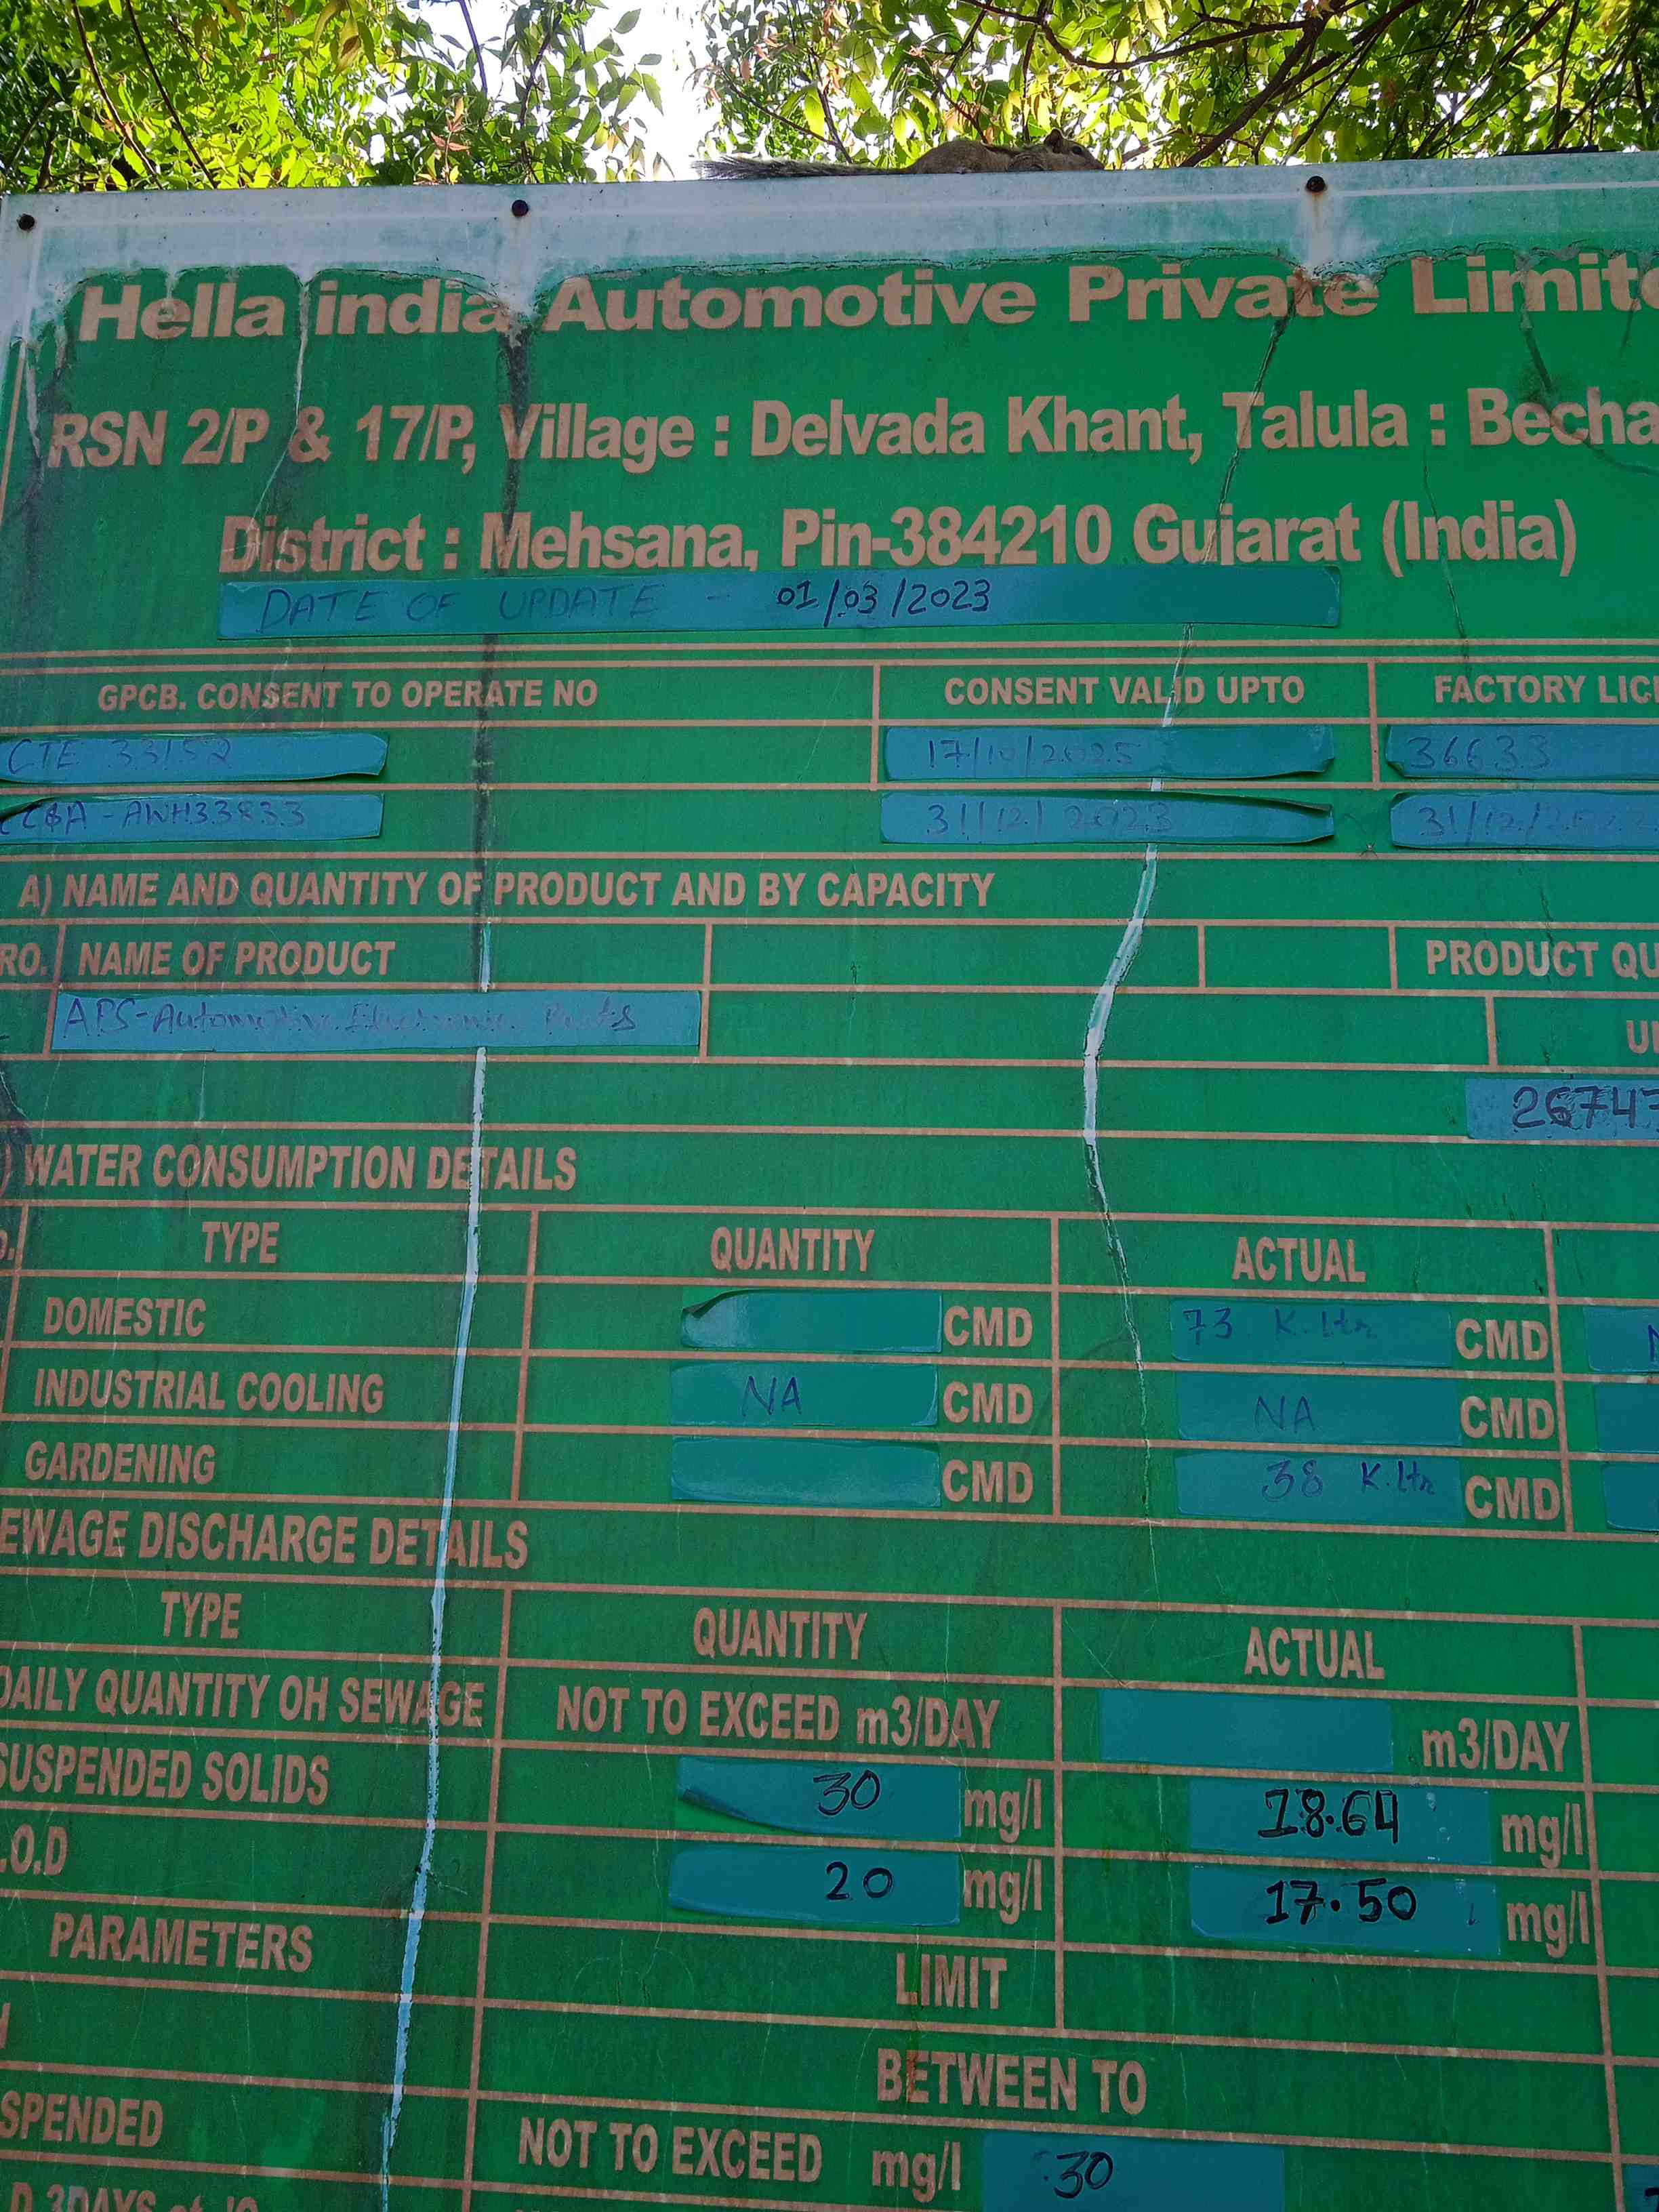 Hella india Automotive Private Limite
RSN 2/P & 17/P, Village : Delvada Khant, Talula : Becha
District : Mehsana, Pin-384210 Gujarat (India)
DATE OF UPDATE - 01/03/2023
GPCB. CONSENT TO OPERATE NO CONSENT VALID UPTO FACTORY LIC
CTE 33152 17/10/2025 36633
CC&A - AWH33833 31/12/2023 31/12/
A) NAME AND QUANTITY OF PRODUCT AND BY CAPACITY
RO. NAME OF PRODUCT PRODUCT QU
APS-Automotive Electronic Parts
26747
WATER CONSUMPTION DETAILS
TYPE QUANTITY ACTUAL
DOMESTIC CMD 73 K.ltr CMD
INDUSTRIAL COOLING NA CMD NA CMD
GARDENING CMD 38 K.ltr CMD
EWAGE DISCHARGE DETAILS
TYPE QUANTITY ACTUAL
DAILY QUANTITY OH SEWAGE NOT TO EXCEED m3/DAY m3/DAY
SUSPENDED SOLIDS 30 mg/l 18.64 mg/l
.O.D 20 mg/l 17.50 mg/l
PARAMETERS LIMIT
BETWEEN TO
SPENDED NOT TO EXCEED mg/l 30
D 3DAYS at